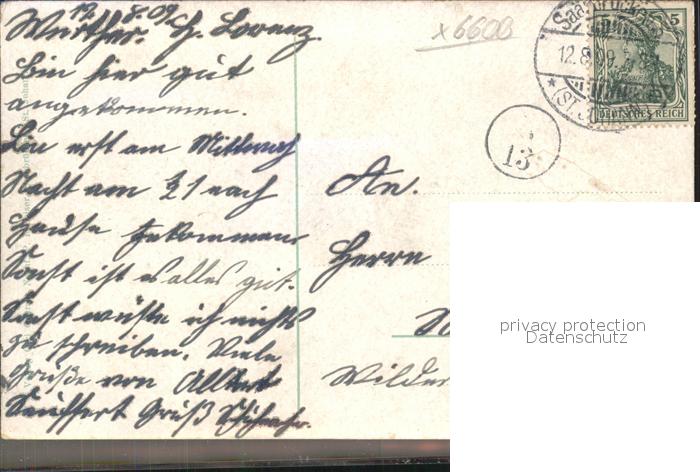 12.8.09.
Werther. H. Lorenz
Bin hier gut
angekommen.
Bin erst am Mittwoch
Nacht am ½ 1 nach
Hause gekommen
Sonst ist es alles gut.
Sonst wüßte ich nichts
zu schreiben. Viele
Grüße von
Seuffert Gruß
x6600
Saarbrücken
12.8.09.
(St. Johann)
5
DEUTSCHES REICH
13
An.
Herrn
Wilder
privacy protection
Datenschutz